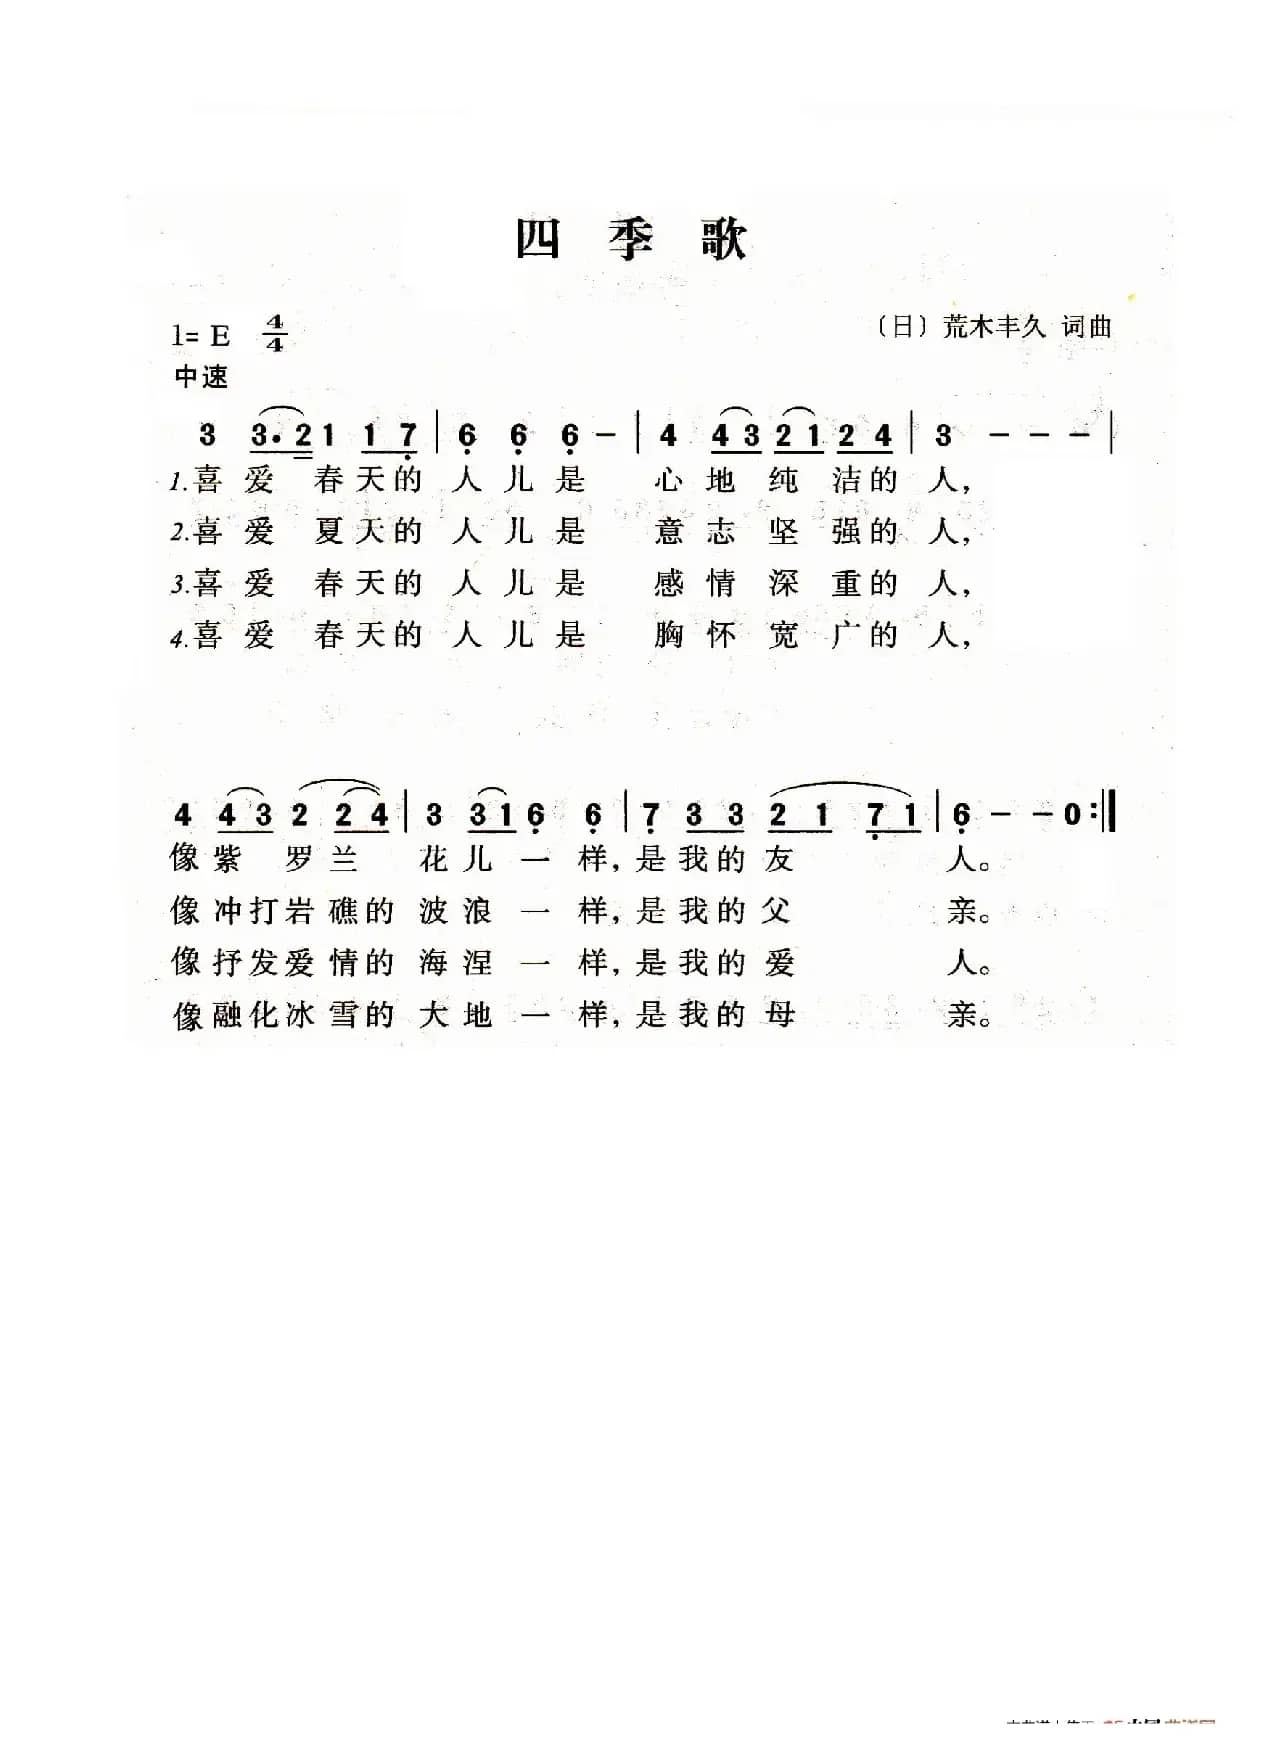 四季歌
1=E 4/4
（日）荒木丰久 词曲
中速
3 3.2 1 1 7 | 6 6 6 - | 4 4 3 2 1 2 4 | 3 - - - |
1.喜爱春天的人儿是 心地纯洁的人，
2.喜爱夏天的人儿是 意志坚强的人，
3.喜爱春天的人儿是 感情深重的人，
4.喜爱春天的人儿是 胸怀宽广的人，
4 4 3 2 2 4 | 3 3 1 6 6 | 7 3 3 2 1 7 1 | 6 - - 0 :||
像紫罗兰花儿一样，是我的友人。
像冲打岩礁的波浪一样，是我的父亲。
像抒发爱情的海涅一样，是我的爱人。
像融化冰雪的大地一样，是我的母亲。